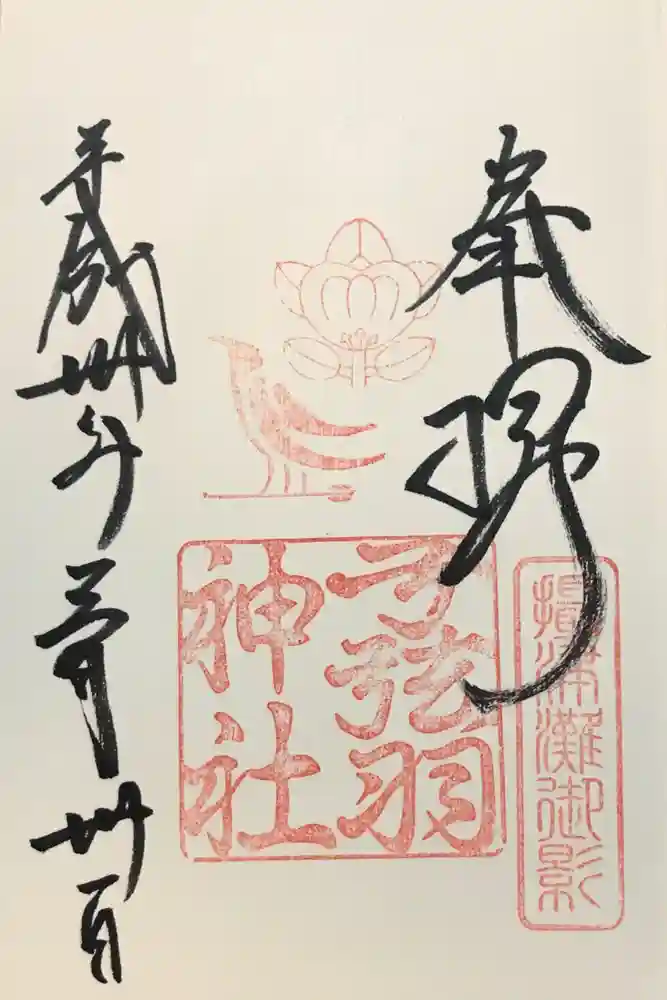 奉拝
攝津灘御影
弓弦羽
神社
平成卅年三月卅一日